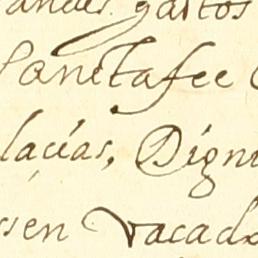 andes gastos
Sanctafee
lacias, Digni
ssen Vacado